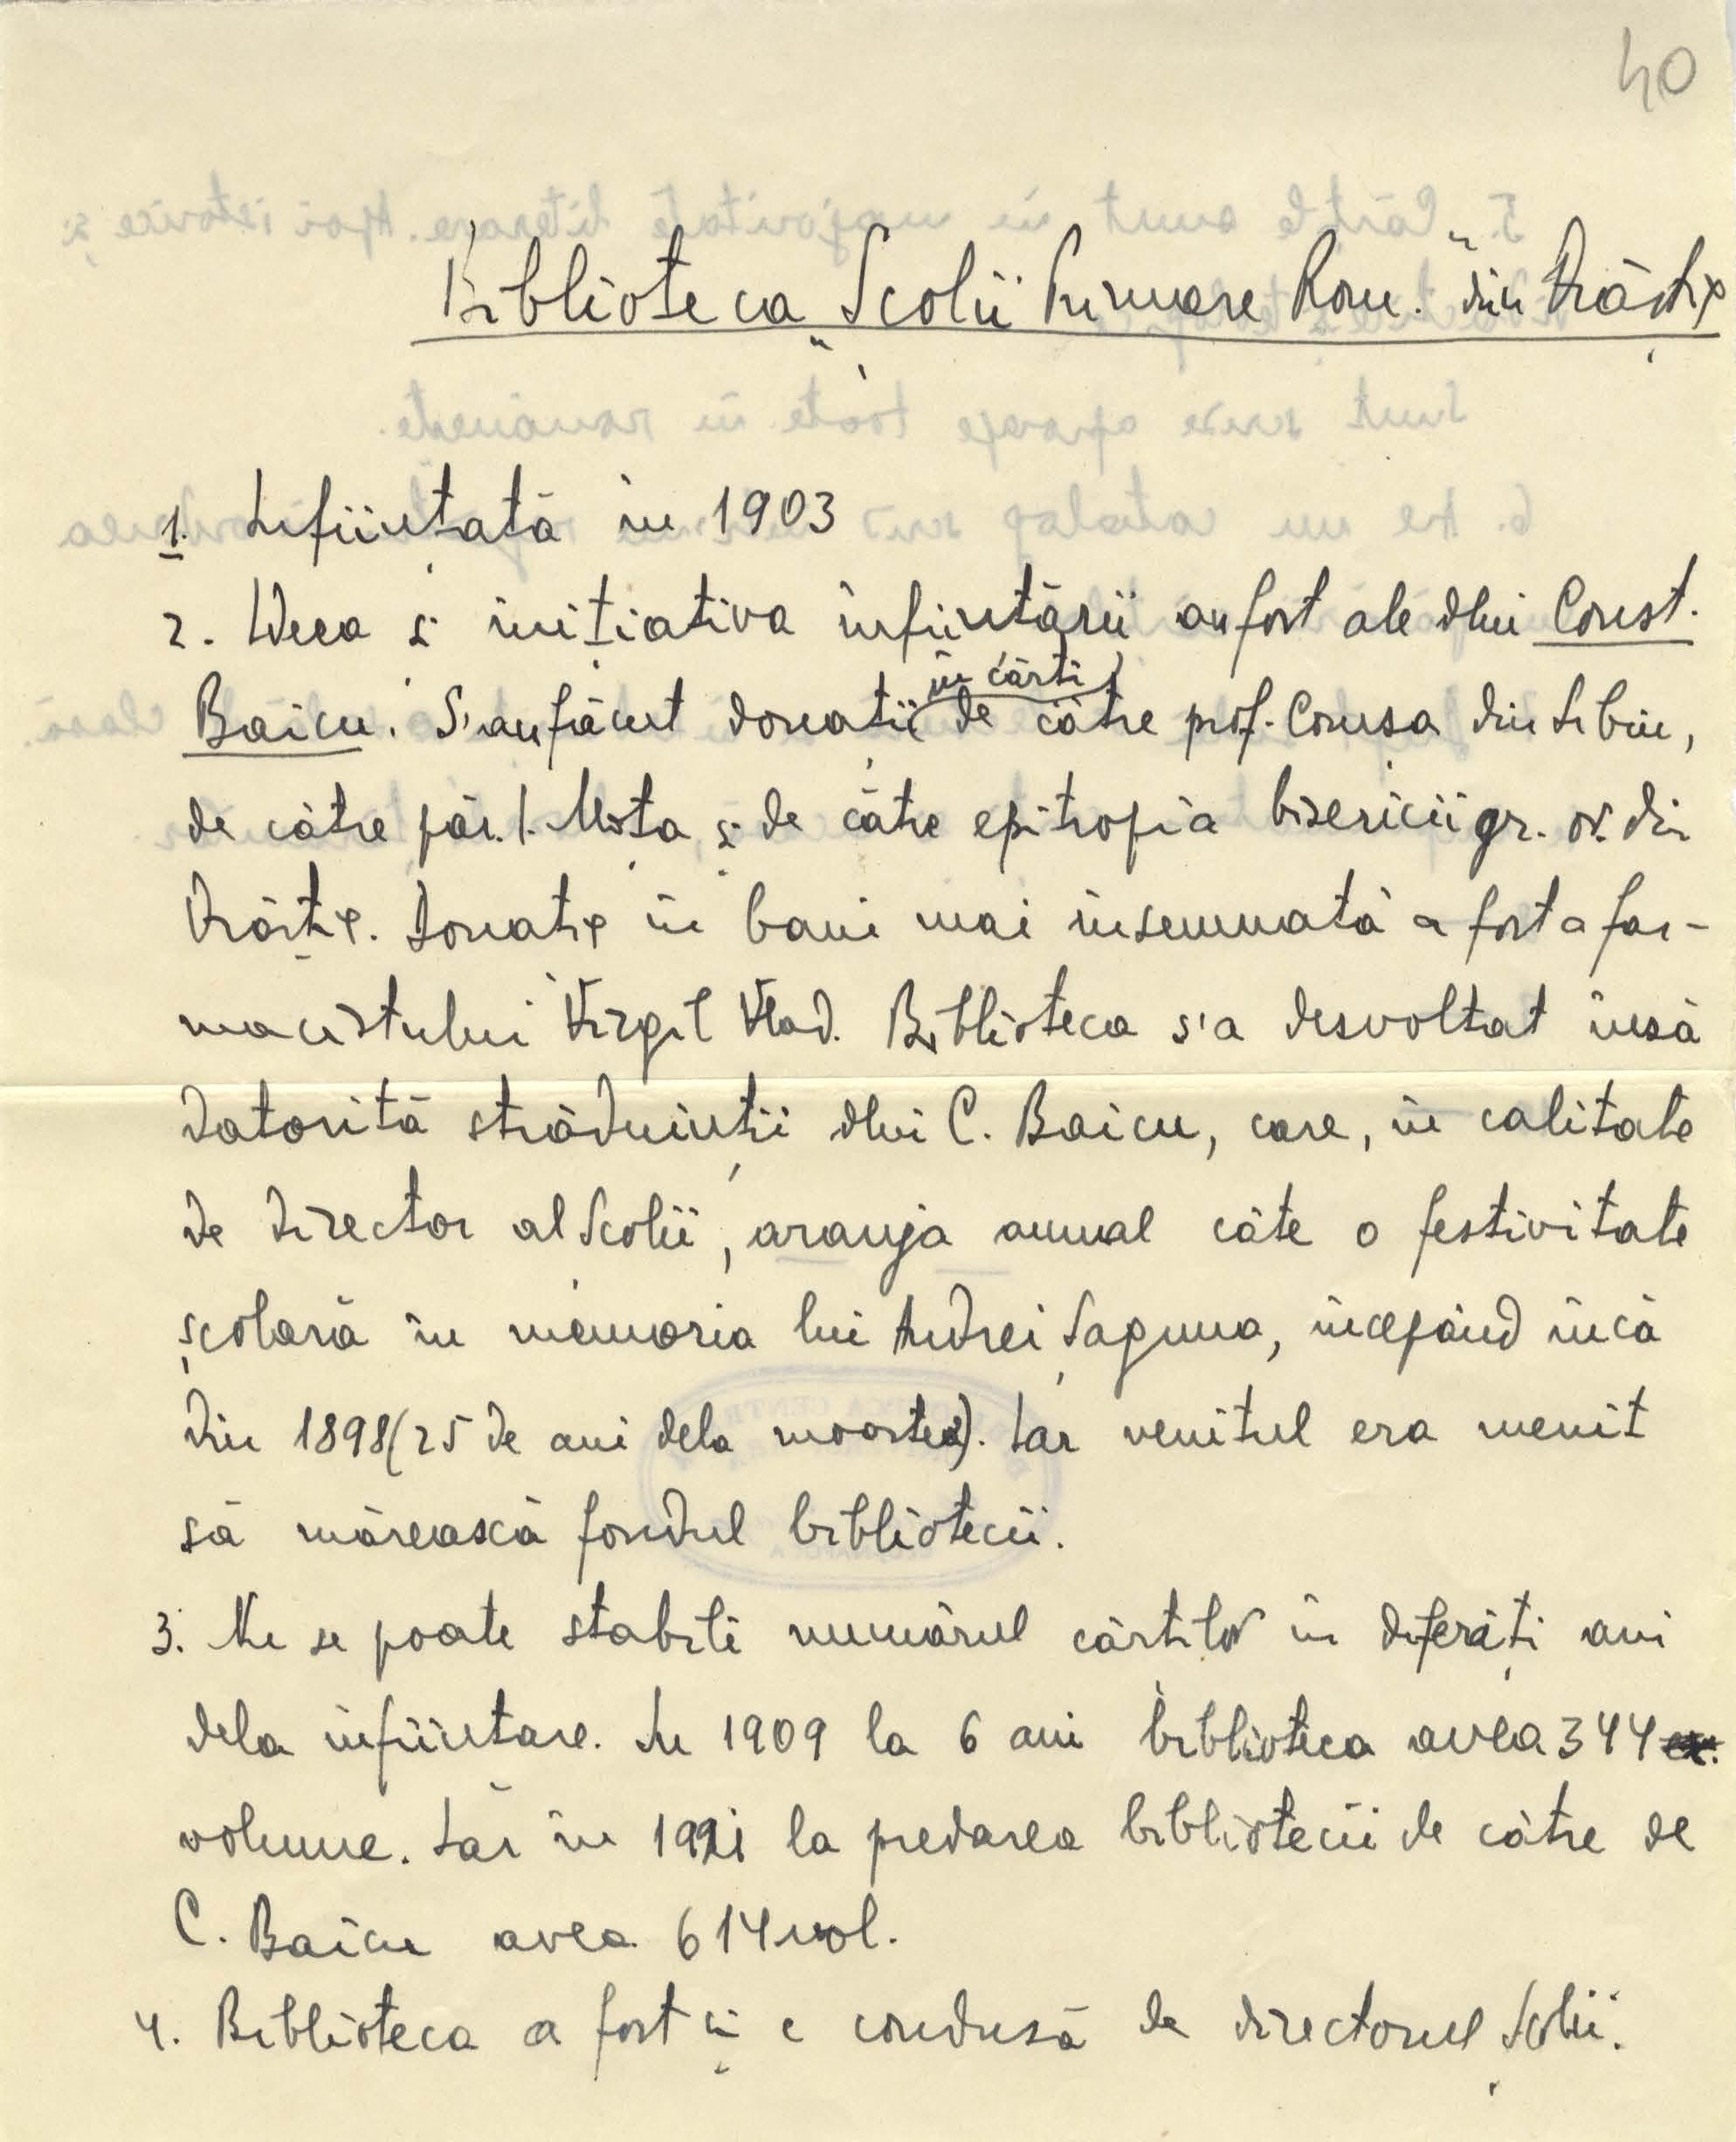 40
Biblioteca „Școlii Primare Rom." din Orăștie
1. Înființată în 1903
2. Ideea și inițiativa înființării au fost ale dlui Const.
Baicu. S'au făcut donații (în cărți) de către prof. Comșa din Sibiu,
de către păr. I. Moța și de către epitropia bisericii gr. or. din
Orăștie. Donație în bani mai însemnată a fost a far-
macistului Virgil Vlad. Biblioteca s'a desvoltat însă
datorită străduinții dlui C. Baicu, care, în calitate
de director al Școlii, aranja anual câte o festivitate
școlară în memoria lui Andrei Șaguna, începând încă
din 1898 (25 de ani dela moartea). Iar venitul era menit
să mărească fondul bibliotecii.
3. Nu se poate stabili numărul cărților în diferiți ani
dela înființare. În 1909 la 6 ani biblioteca avea 344
volume. Iar în la predarea bibliotecii de către de
C. Baicu avea 614 vol.
4. Biblioteca a fost și e condusă de directorul Școlii.